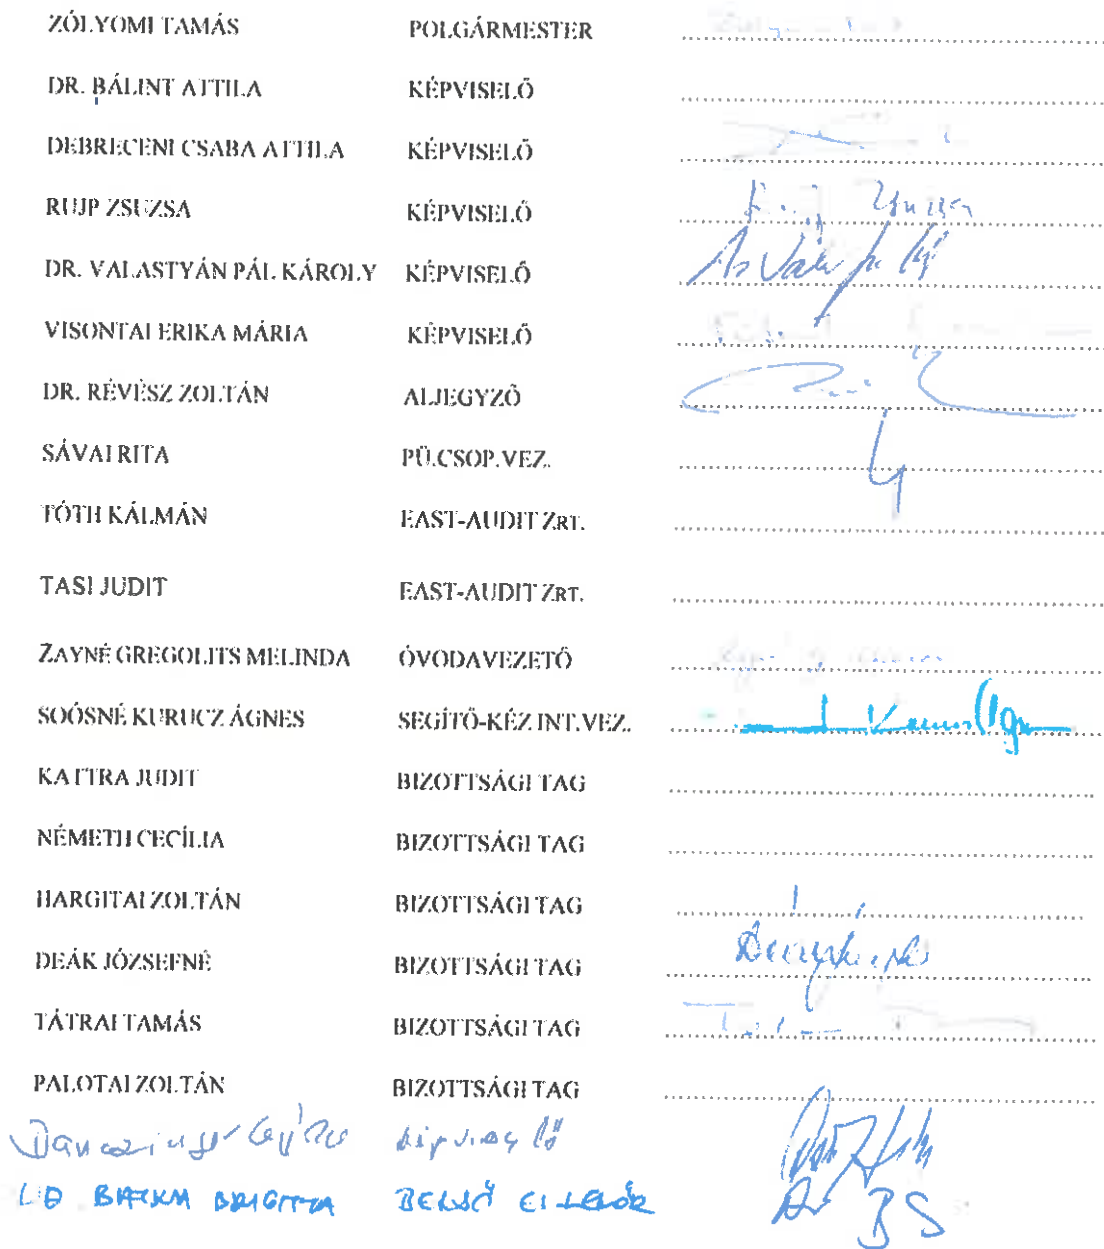 ZÓLYOMI TAMÁS POLGÁRMESTER
DR. BÁLINT ATTILA KÉPVISELŐ
DEBRECENI CSABA ATTILA KÉPVISELŐ
RUJP ZSUZSA KÉPVISELŐ Zsuzsa
DR. VALASTYÁN PÁL KÁROLY KÉPVISELŐ
VISONTAI ERIKA MÁRIA KÉPVISELŐ
DR. RÉVÉSZ ZOLTÁN ALJEGYZŐ
SÁVAI RITA PÜ.CSOP.VEZ.
TÓTH KÁLMÁN EAST-AUDIT ZRT.
TASI JUDIT EAST-AUDIT ZRT.
ZAYNÉ GREGOLITS MELINDA ÓVODAVEZETŐ
SOÓSNÉ KURUCZ ÁGNES SEGÍTŐ-KÉZ INT.VEZ.
KATTRA JUDIT BIZOTTSÁGI TAG
NÉMETH CECÍLIA BIZOTTSÁGI TAG
HARGITAI ZOLTÁN BIZOTTSÁGI TAG
DEÁK JÓZSEFNÉ BIZOTTSÁGI TAG
TÁTRAI TAMÁS BIZOTTSÁGI TAG
PALOTAI ZOLTÁN BIZOTTSÁGI TAG
képviselő
BRIGITTA BELSŐ ELLENŐR